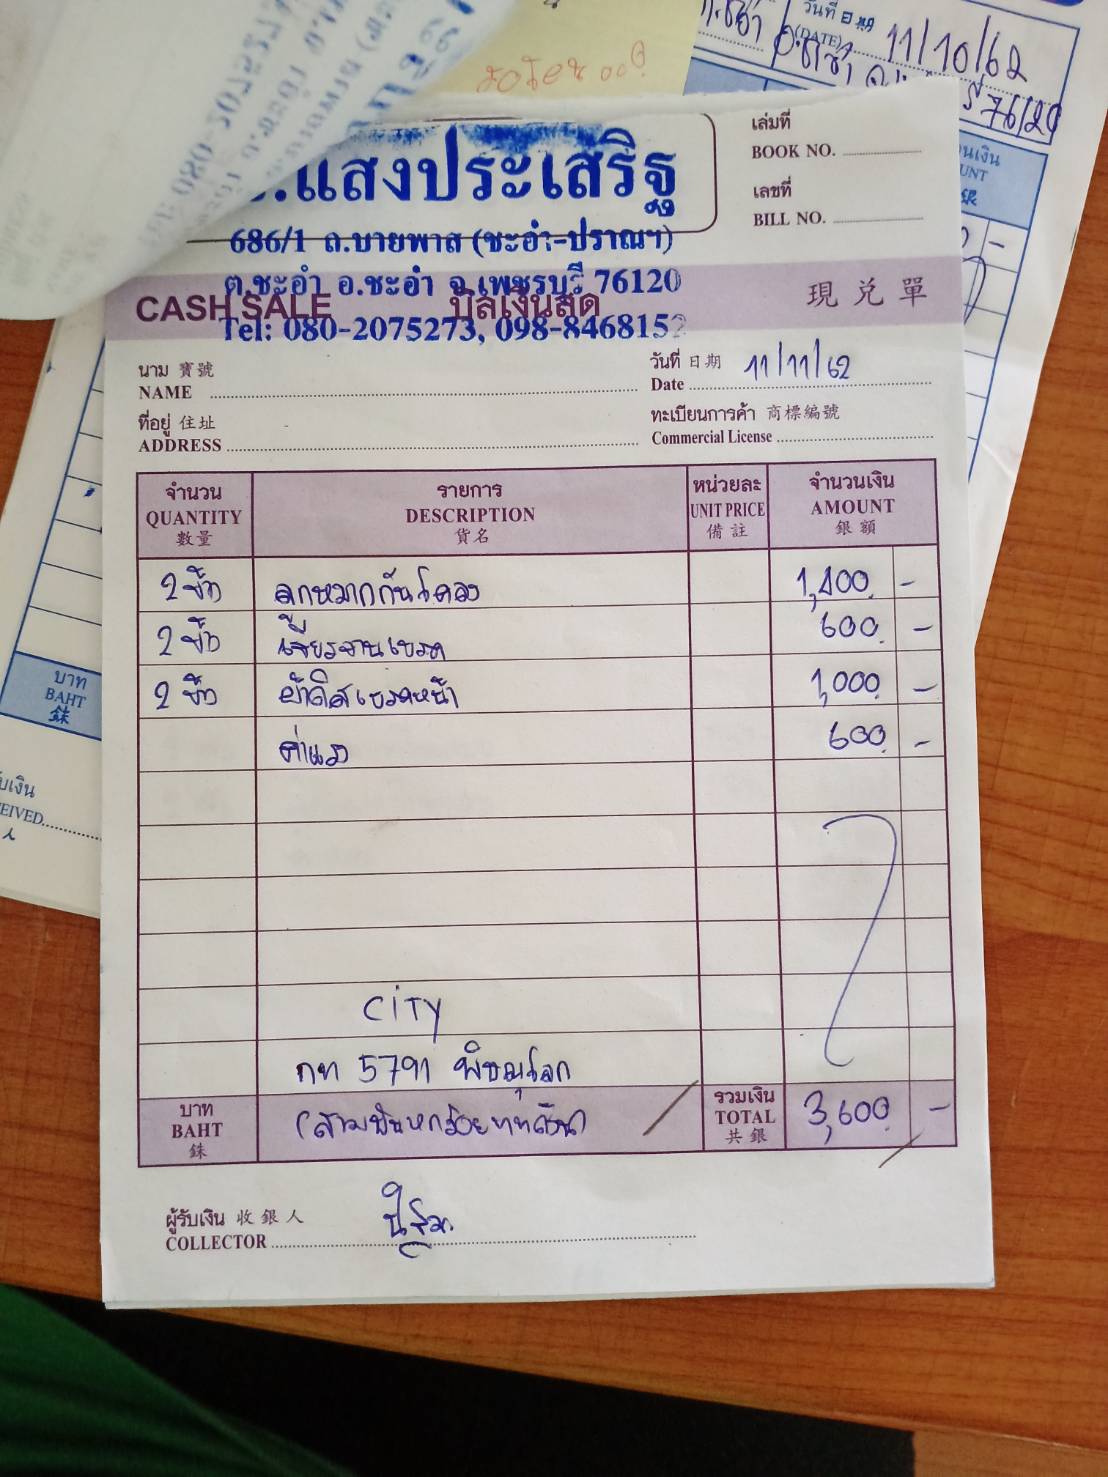 วันที่
(DATE) 11/10/62
.แสงประเสริฐ
686/1 ถ.บายพาส (ชะอำ-ปราณฯ)
ต.ชะอำ อ.ชะอำ จ.เพชรบุรี 76120
Tel: 080-2075273, 098-8468152
เล่มที่
BOOK NO.
เลขที่
BILL NO.
CASH SALE บิลเงินสด 現兑單
นาม 寶號
NAME
วันที่ 日期 11/11/62
Date
ที่อยู่ 住址
ADDRESS
ทะเบียนการค้า 商標編號
Commercial License
จำนวน รายการ หน่วยละ จำนวนเงิน
QUANTITY DESCRIPTION UNIT PRICE AMOUNT
數量 貨名 備註 銀額
2 ชิ้น ลูกหมากกันโคลง 1,400 -
2 ชิ้น เจียรจานเบรค 600 -
2 ชิ้น ผ้าดิสเบรคหน้า 1,000 -
ค่าแรง 600 -
CITY
กท 5791 พิษณุโลก
บาท
BAHT
銖
(สามพันหกร้อยบาทถ้วน)
รวมเงิน
TOTAL
共銀
3,600 -
ผู้รับเงิน 收銀人
COLLECTOR
บาท
BAHT
銖